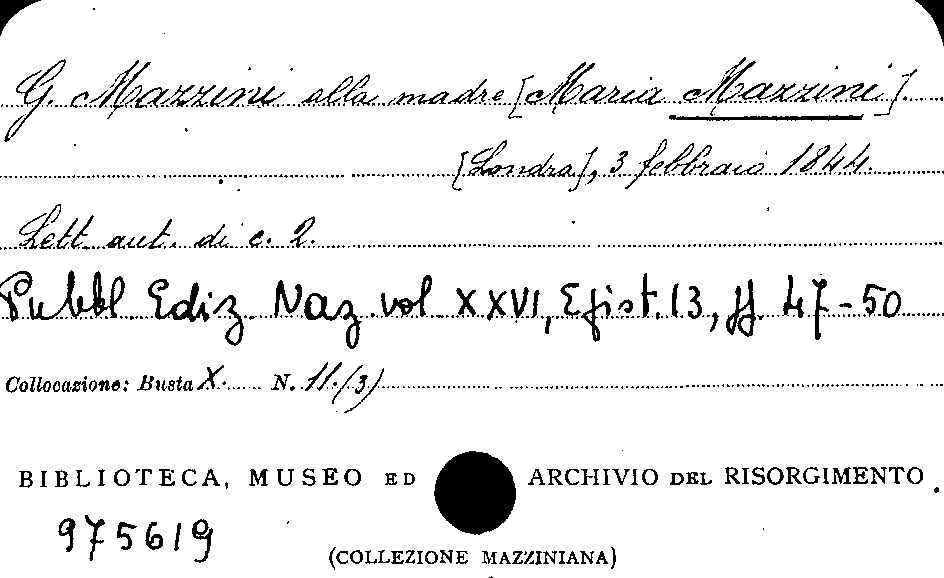 G. Mazzini alla madre [Maria Mazzini].
[Londra], 3 febbraio 1844.
Lett. aut. di c. 2.
Pubbl Ediz. Naz. vol XXVI, Epist. 13, pp. 47-50
Collocazione: Busta X. N. 11.(3)
BIBLIOTECA, MUSEO ED ARCHIVIO DEL RISORGIMENTO
975619
(COLLEZIONE MAZZINIANA)